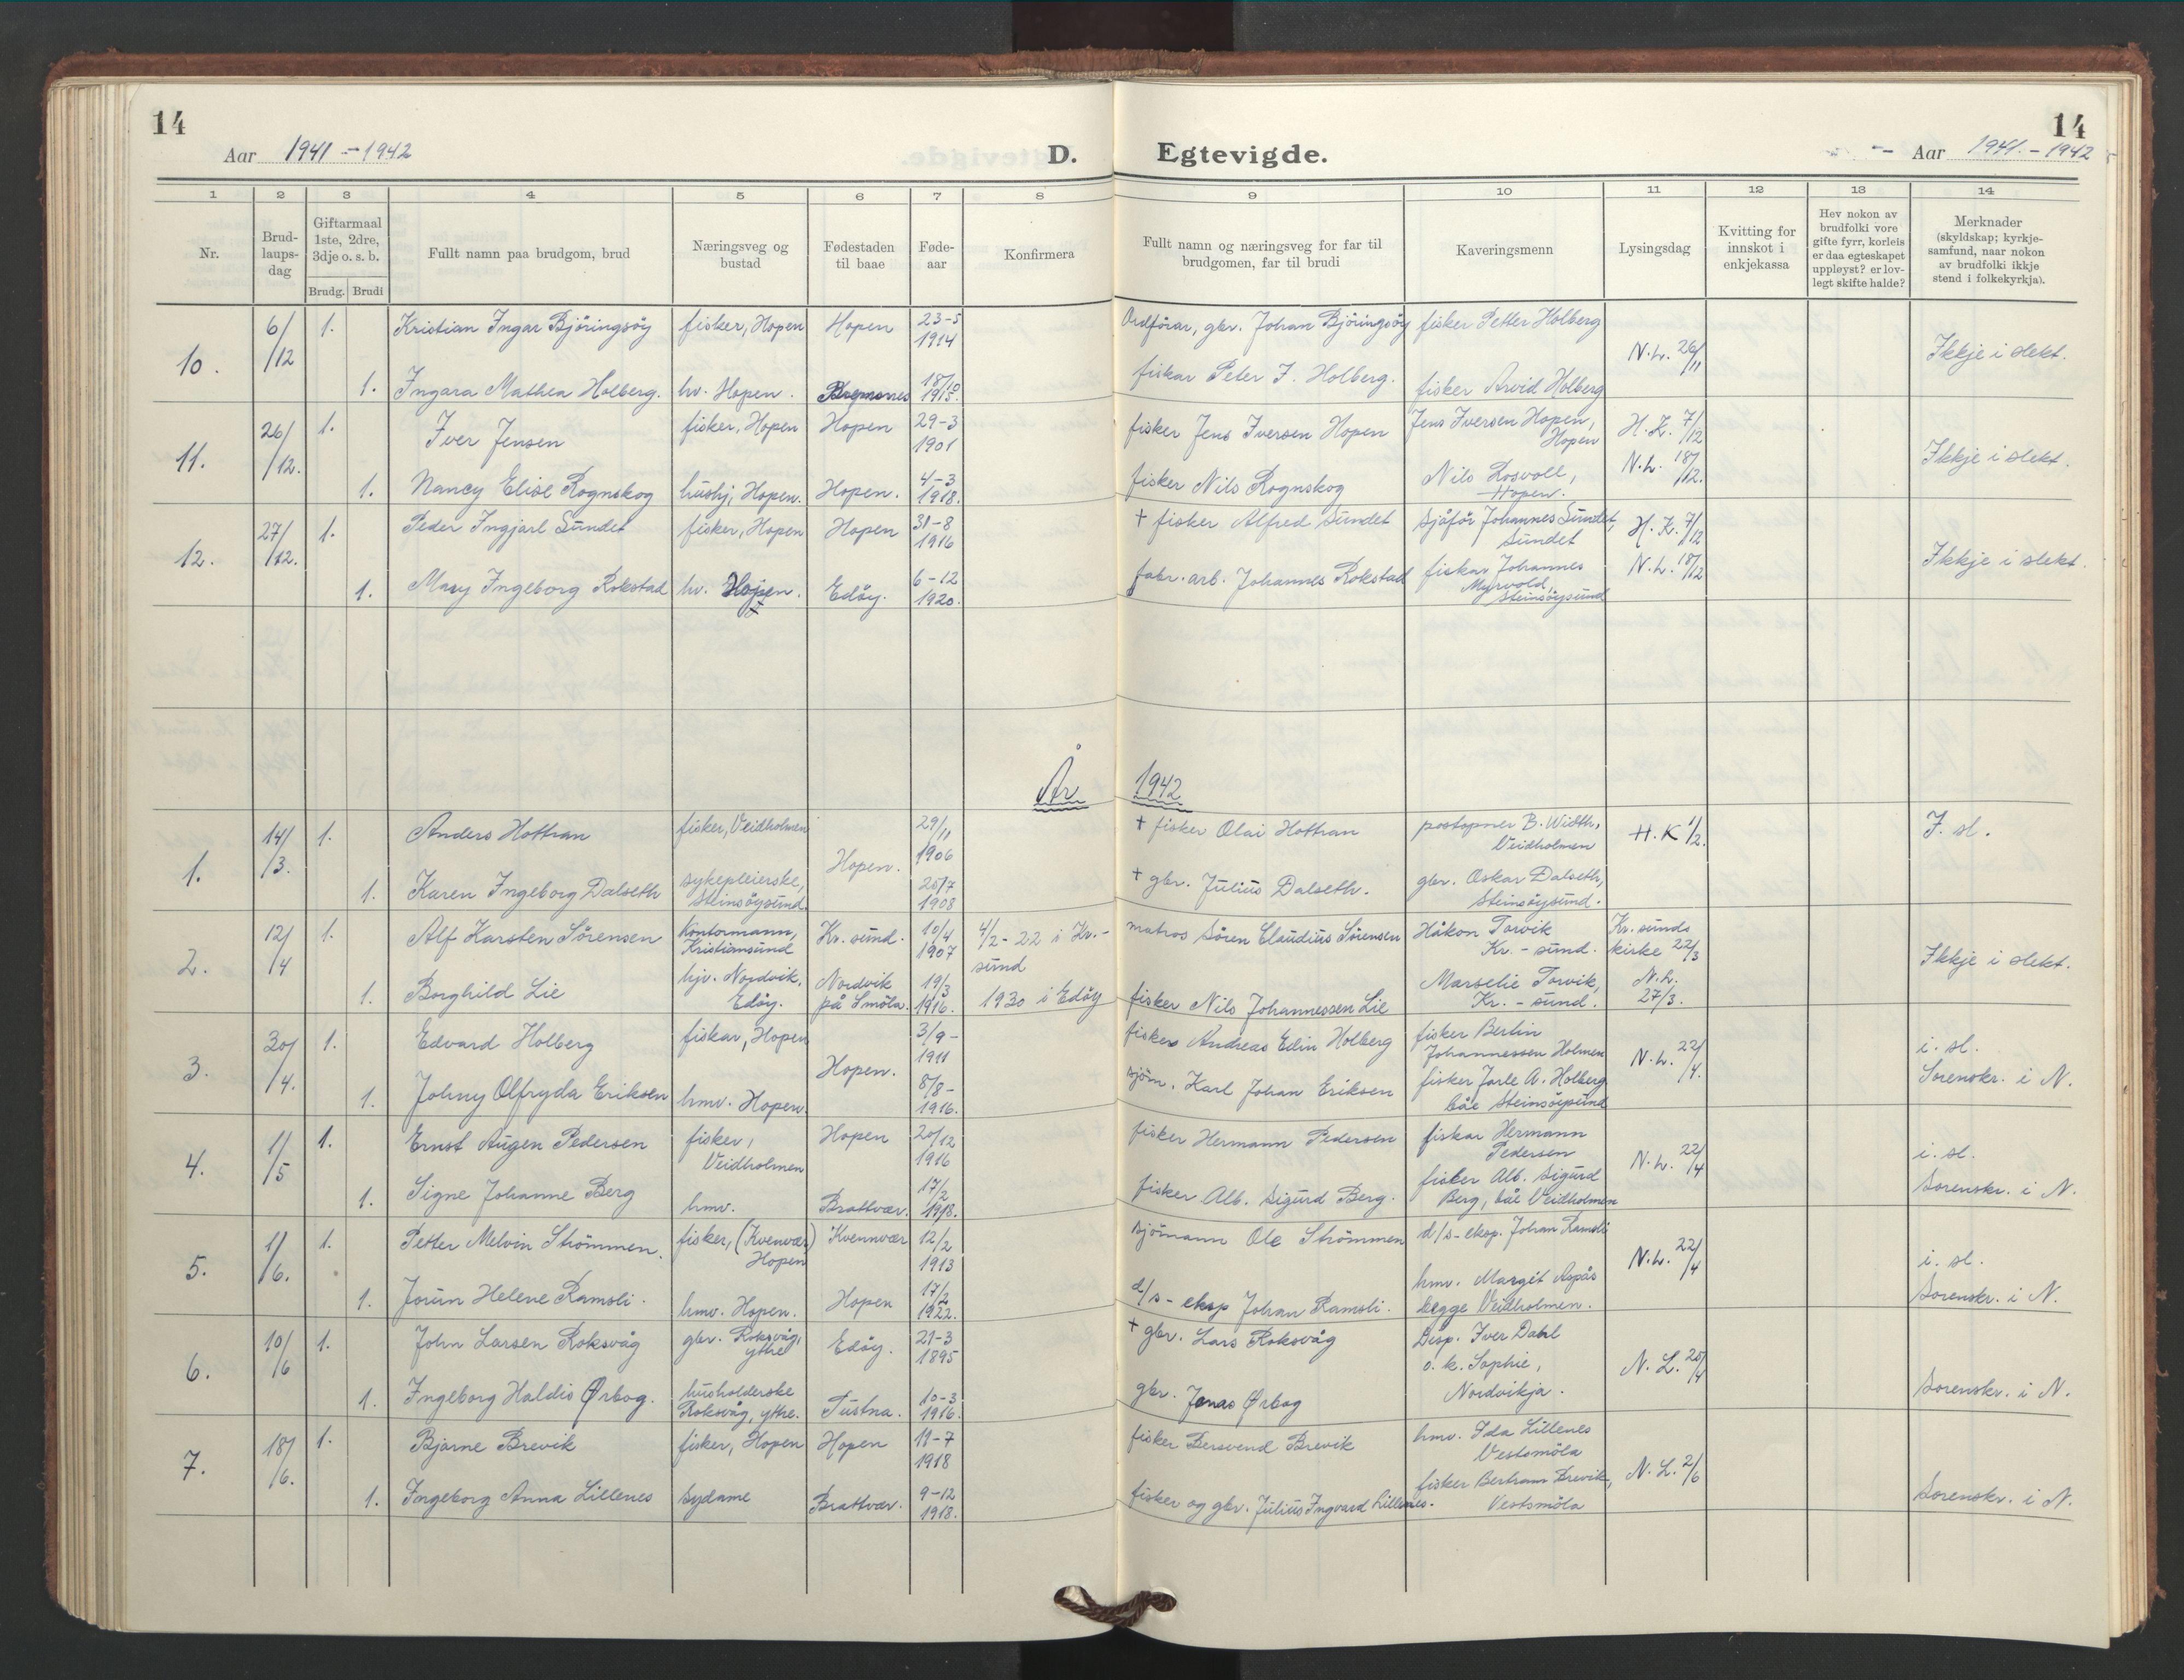 14
Aar 1941 – 1942
D.
1 2 3 4 5 6 7 8
Nr.
Brud-
laups-
dag
Giftarmaal
1ste, 2dre,
3dje o. s. b.
Brudg. Brudi
Fullt namn paa brudgom, brud
Næringsveg og
bustad
Fødestaden
til baae
Føde-
aar
Konfirmera
10. 6/12 1. Kristian Ingar Björingsöy fisker, Hopen Hopen 23-5 1914
1. Ingara Mathea Holberg. hv. Hopen. 18/10 1915.
11. 26/12. 1. Iver Jensen fisker, Hopen Hopen 29-3 1901
1. Nancy Elise Rognskog hushj, Hopen. Hopen. 4-3 1918.
12. 27/12. 1. Peder Ingjarl Sundet fisker, Hopen Hopen 31-8 1916
1. Mary Ingeborg Rokstad hv. Hopen. Edöy. 6-12 1920.
År
1. 14/3. 1. Anders Hottran fisker, Veidholmen 29/11 1906
Hopen.
1. Karen Ingeborg Dalseth sykepleierske, Steinsöysund. 25/7 1908
2. 12/4 1. Alf Karsten Sörensen Kontormann, Kristiansund Kr. sund. 10/4 1907 4/2-22 i Kr.-sund
1. Borghild Lie hjv. Nordvik, Edöy. Nordvik på Smöla. 19/3 1916. 1930 i Edöy
3. 30/4. 1. Edvard Holberg fiskar, Hopen 3/9- 1911
Hopen.
1. Johny Olfryda Eriksen hmv. Hopen. 8/8- 1916.
4. 1/5 1. Ernst Augen Pedersen fisker, Veidholmen Hopen 20/12 1916
1. Signe Johanne Berg hmv. Brattvær. 17/2 1918.
5. 1/6. 1. Petter Melvin Strömmen. fisker, (Kvenvær) Hopen Kvennvær 12/2 1913
1. Jorun Helene Ramsli. hmv. Hopen. Hopen 17/2 1922.
6. 10/6 1. John Larsen Roksvåg gbr. Roksvåg, ytre Edöy. 21-3 1895
1. Ingeborg Haldis Ørbog. husholderske Roksvåg, ytre. Tustna. 10-3 1916.
7. 18/6. 1. Bjarne Brevik fisker, Hopen Hopen 11-7 1918
1. Ingeborg Anna Lillenes sydame Brattvær. 9-12 1918.
14
Egtevigde.
Aar 1941. – 1942
9 10 11 12 13 14
Fullt namn og næringsveg for far til
brudgomen, far til brudi
Kaveringsmenn
Lysingsdag
Kvitting for
innskot i
enkjekassa
Hev nokon av
brudfolki vore
gifte fyrr, korleis
er daa egteskapet
uppløyst? er lov-
legt skifte halde?
Merknader
(skyldskap; kyrkje-
samfund, naar nokon
av brudfolki ikkje
stend i folkekyrkja).
Ordförar, gbr. Johan Björingsöy fisker Petter Holberg
N.L. 26/11 Ikkje i slekt.
fiskar Peter J. Holberg. fisker Arvid Holberg
fisker Jens Iversen Hopen Jens Iversen Hopen, Hopen H.K. 7/12
Ikkje i slekt.
fisker Nils Rognskog Nils Rosvoll, Hopen. N.L. 18/12.
+ fisker Alfred Sundet sjåför Johannes Sundet, Sundet H.K. 7/12
Ikkje i slekt.
fabr. arb. Johannes Rokstad fiskar Johannes Myrvold, Steinsöysund N.L. 18/12
1942
+ fisker Olai Hottran postopner B. Width, Veidholmen H.K 1/2. I. sl.
+ gbr. Julius Dalseth. gbr. Oskar Dalseth, Steinsöysund.
matros Sören Claudius Sörensen Håkon Torvik Kr.-sund. Kr. sunds kirke 22/3
Ikkje i slekt.
fisker Nils Johannessen Lie Marselie Torvik, Kr.-sund. N.L. 27/3.
fisker Andreas Edin Holberg fisker Berlin Johannessen Holmen N.L. 22/4. i. sl.
sjöm. Karl Johan Eriksen fisker Jarle A. Holberg båe Steinsöysund Sorenskr. i N.
fisker Hermann Pedersen fiskar Hermann Pedersen N.L. 22/4 i. sl.
fisker Alb. Sigurd Berg. fisker Alb. Sigurd Berg, båe Veidholmen Sorenskr. i N.
sjömann Ole Strömmen d/s-eksp. Johan Ramsli N.L. 22/4 i. sl.
d/s-eksp Johan Ramsli. hmv. Margit Aspås begge Veidholmen. Sorenskr. i N.
+ gbr. Lars Roksvåg Disp. Iver Dahl o. k. Sophie, Nordvikja. N. L. 25/4
gbr. Jonas Ørbog Sorenskr. i N.
fisker Bersvend Brevik hmv. Ida Lillenes Vestsmöla N. L. 2/6
fisker og gbr. Julius Ingvard Lillenes. fisker Bertram Brevik, Vestsmöla Sorenskr. i N.